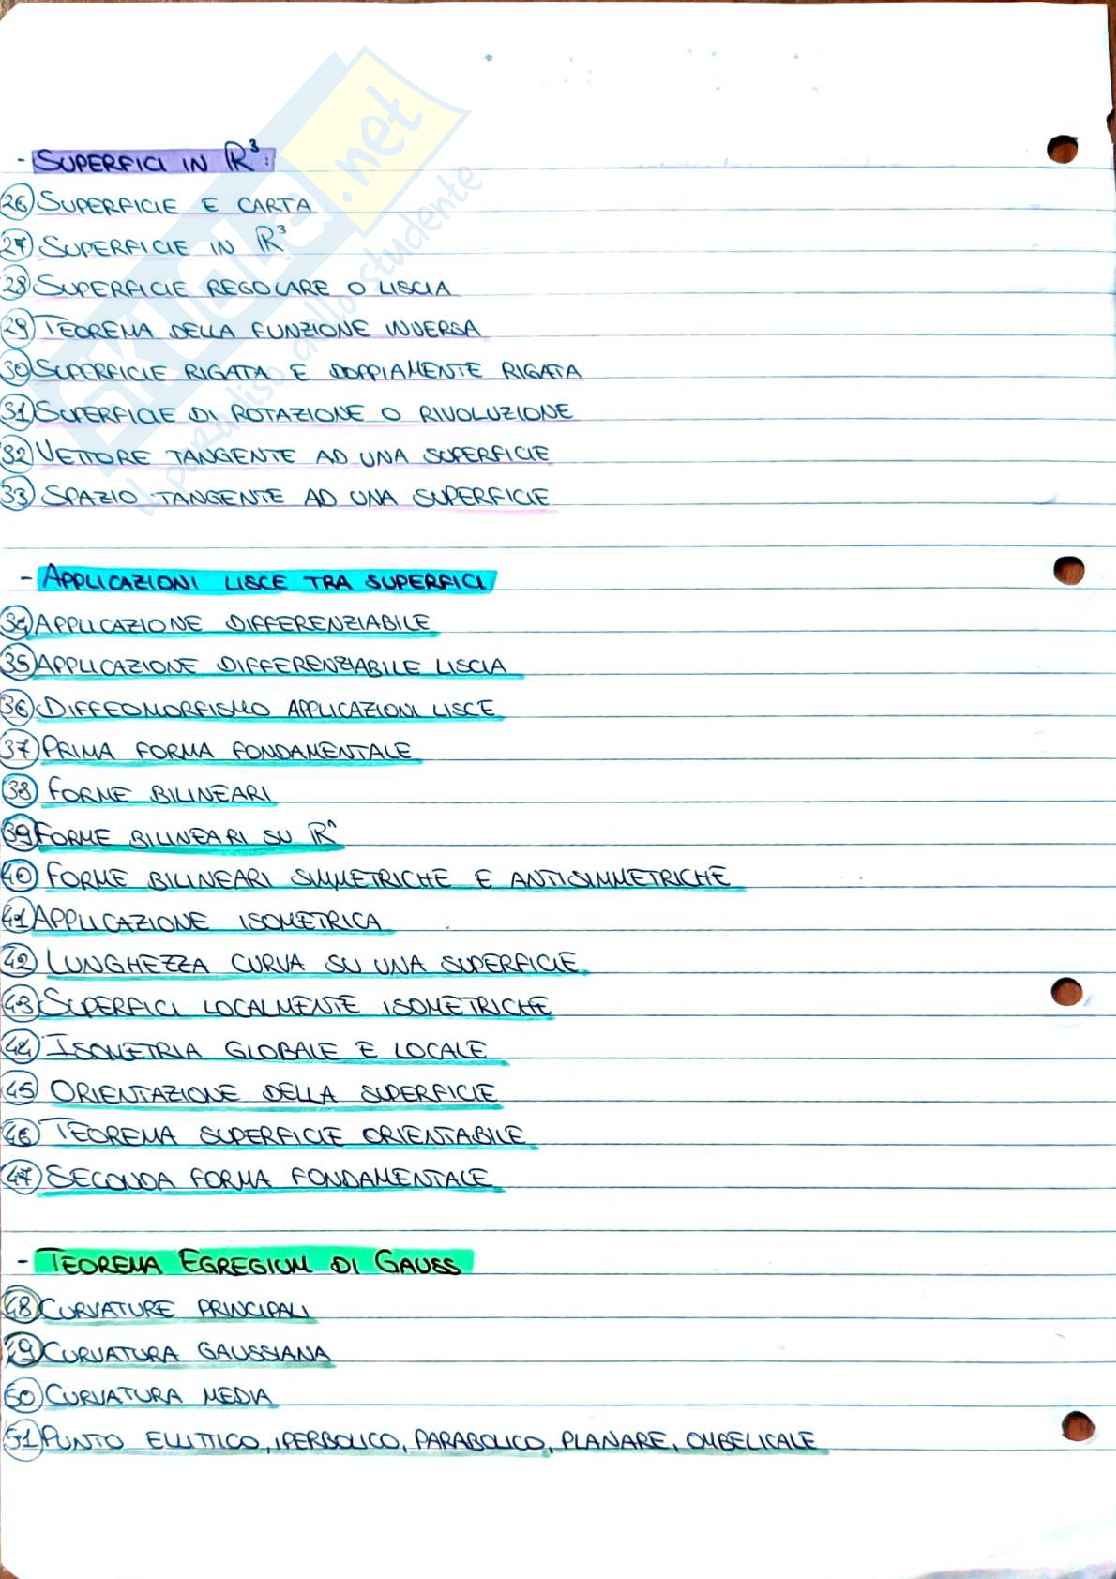 - SUPERFICI IN ℝ³:
26 SUPERFICIE E CARTA
27 SUPERFICIE IN ℝ³
28 SUPERFICIE REGOLARE O LISCIA
29 TEOREMA DELLA FUNZIONE INVERSA
30 SUPERFICIE RIGATA E DOPPIAMENTE RIGATA
31 SUPERFICIE DI ROTAZIONE O RIVOLUZIONE
32 VETTORE TANGENTE AD UNA SUPERFICIE
33 SPAZIO TANGENTE AD UNA SUPERFICIE
- APPLICAZIONI LISCE TRA SUPERFICI
34 APPLICAZIONE DIFFERENZIABILE
35 APPLICAZIONE DIFFERENZIABILE LISCIA
36 DIFFEOMORFISMO APPLICAZIONI LISCE
37 PRIMA FORMA FONDAMENTALE
38 FORME BILINEARI
39 FORME BILINEARI SU ℝⁿ
40 FORME BILINEARI SIMMETRICHE E ANTISIMMETRICHE
41 APPLICAZIONE ISOMETRICA
42 LUNGHEZZA CURVA SU UNA SUPERFICIE
43 SUPERFICI LOCALMENTE ISOMETRICHE
44 ISOMETRIA GLOBALE E LOCALE
45 ORIENTAZIONE DELLA SUPERFICIE
46 TEOREMA SUPERFICIE ORIENTABILE
47 SECONDA FORMA FONDAMENTALE
- TEOREMA EGREGIUM DI GAUSS
48 CURVATURE PRINCIPALI
49 CURVATURA GAUSSIANA
50 CURVATURA MEDIA
51 PUNTO ELLITTICO, IPERBOLICO, PARABOLICO, PLANARE, OMBELICALE